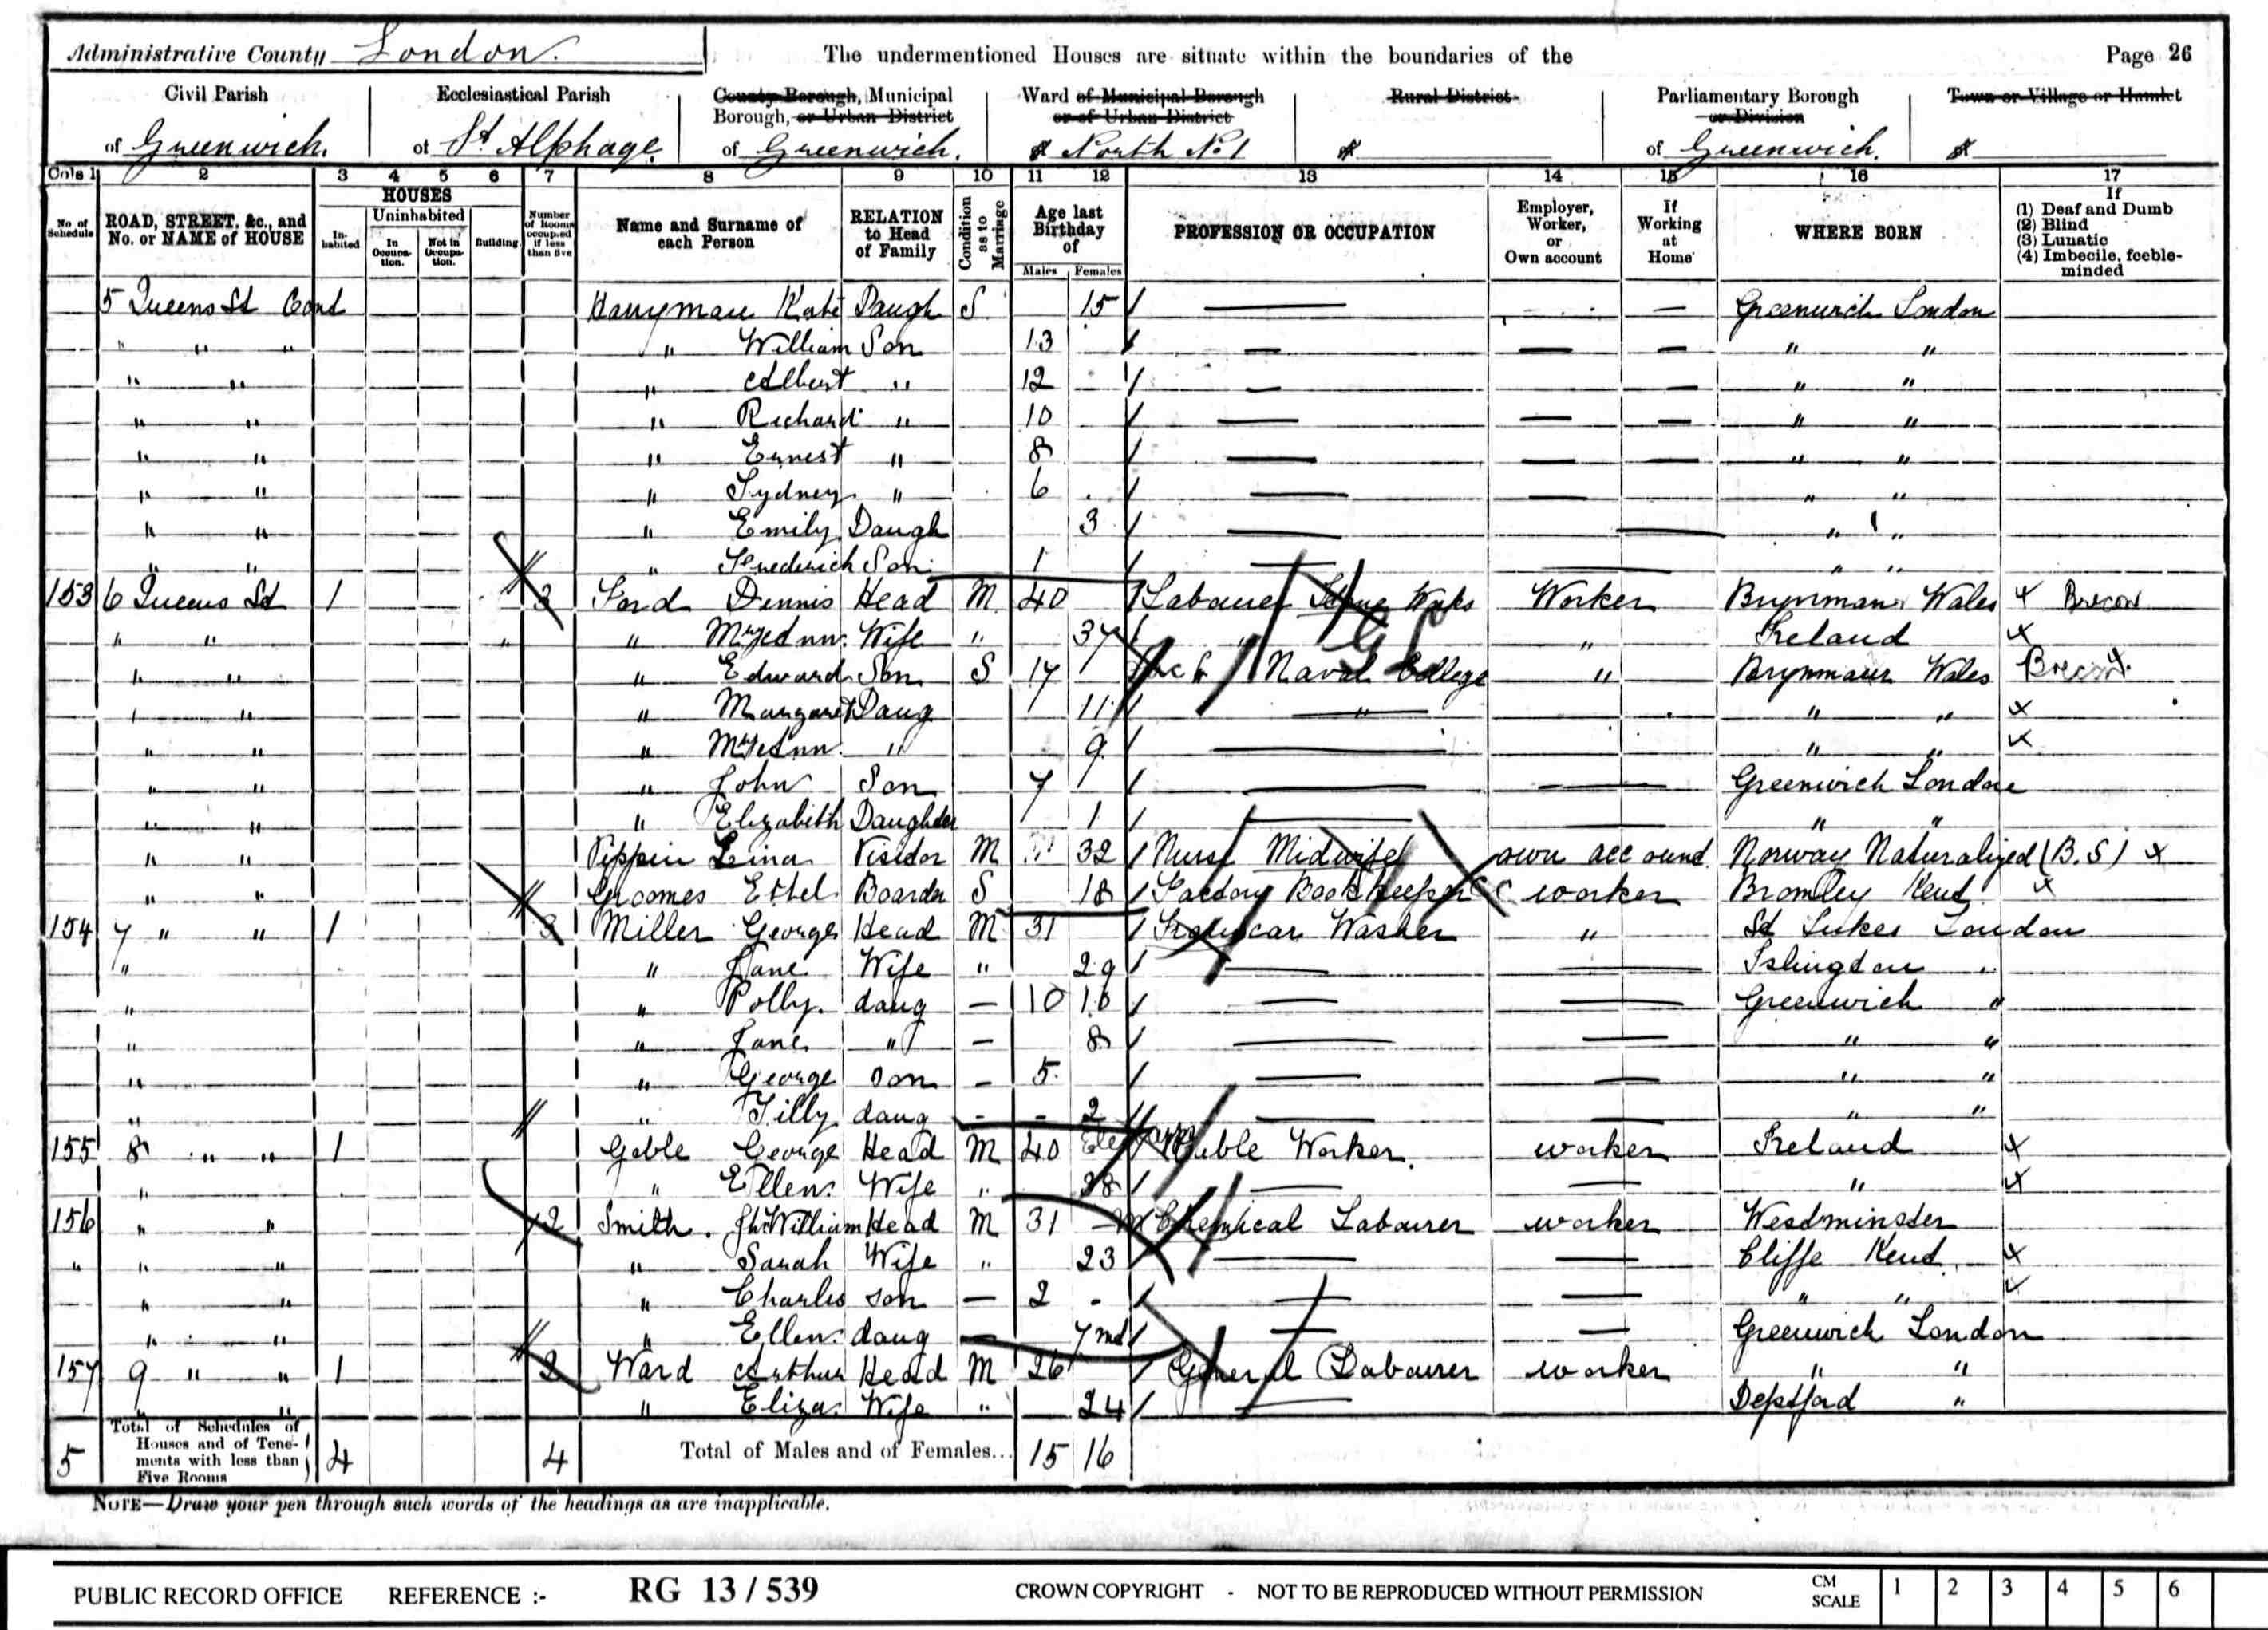 Administrative County London. The undermentioned Houses are situate within the boundaries of the Page 26
Civil Parish Ecclesiastical Parish County Borough, Municipal Ward of Municipal Borough Rural District Parliamentary Borough Town or Village or Hamlet
Borough, or Urban District or of Urban District or Division
of Greenwich. of St Alphage. of Greenwich. of North No 1 of of Greenwich. of
Cols 1 2 3 4 5 6 7 8 9 10 11 12 13 14 15 16 17
No of Schedule ROAD, STREET, &c., and No. or NAME of HOUSE HOUSES Inhabited Uninhabited In Occupation. Not in Occupation. Building. Number of Rooms occupied if less than five Name and Surname of each Person RELATION to Head of Family Condition as to Marriage Age last Birthday of Males Females PROFESSION OR OCCUPATION Employer, Worker, or Own account If Working at Home WHERE BORN If (1) Deaf and Dumb (2) Blind (3) Lunatic (4) Imbecile, feeble-minded
5 Queens St Cont Harryman Kate Daugh S. 15 Greenwich London
" " " " William Son 13 " "
" " " Albert " 12 " "
" " " Richard " 10 " "
" " " Ernest " 8 " "
" " " Sydney " 6 " "
" " " Emily Daugh 3 " "
" " " Frederick Son 1 " "
153 6 Queens St 1 3 Ford Dennis Head M 40 Labourer Works Worker Brynmawr Wales x Brecon
" " " My Ann Wife " 37 " Ireland x
" " " Edward Son S 17 Naval College " Brynmawr Wales Brecon x
" " " Margaret Daug 11 " " " x
" " " My Ann " 9 " " x
" " " John Son 7 Greenwich London
" " " Elizabeth Daughter 1 " "
" " Pippin Lina Visitor M 32 Nurse Midwife own account Norway Naturalized (B.S) x
" " Groomes Ethel Boarder S 18 Factory Bookkeeper worker Bromley Kent x
154 7 " " 1 3 Miller George Head M 31 Tramcar Washer " St Lukes London
" " Jane Wife " 29 Islington "
" " Polly. daug — 10 10 Greenwich "
" " Jane " — 8 " "
" " George son — 5 " "
" " Tilly daug - - 2 " "
155 8 " " 1 Goble George Head M 40 Cable Worker. worker Ireland x
" " Ellen Wife " 28 " x
156 " " 2 Smith. Jn William Head M 31 Chemical Labourer worker Westminster
" " " " Sarah Wife " 23 Cliffe Kent x
" " " Charles son — 2 - " " x
" " " Ellen daug 7 mo Greenwich London
157 9 " " 1 2 Ward Arthur Head M 26 General Labourer worker " "
" " " Eliza Wife " 24 Deptford "
5 Total of Schedules of Houses and of Tenements with less than Five Rooms 4 4 Total of Males and of Females... 15 16
NOTE—Draw your pen through such words of the headings as are inapplicable.
PUBLIC RECORD OFFICE REFERENCE :- RG 13 / 539 CROWN COPYRIGHT - NOT TO BE REPRODUCED WITHOUT PERMISSION CM SCALE 1 2 3 4 5 6